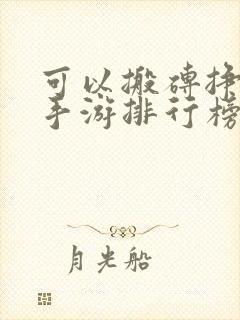 可以搬砖挣
手游排行榜
月光船